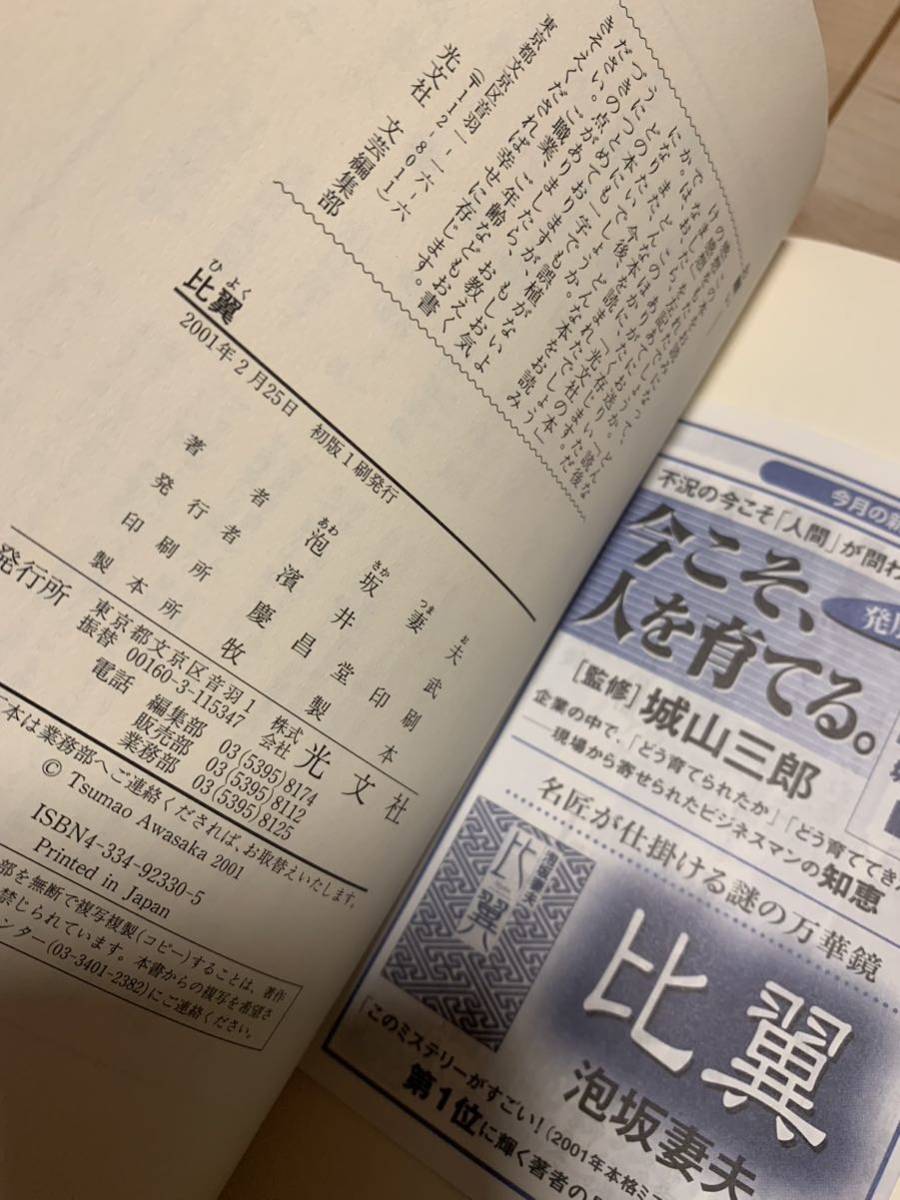 うにつとめてもおりますが、もしお気
づきの点がありましたら、お教え
ください。ご職業、ご年齢なども書
きそえくだされば幸せに存じます。
東京都文京区音羽一-一六-六
(〒112-8011)
光文社 文芸編集部
ひよく
比翼
2001年2月25日 初版1刷発行
著者 泡坂妻夫
あわ さか つま お
発行者 濱井武
印刷所 慶昌堂印刷
製本所 牧製本
発行所 東京都文京区音羽1 株式会社 光文社
振替 00160-3-115347
電話 編集部 03(5395)8174
販売部 03(5395)8112
業務部 03(5395)8125
本は業務部へご連絡くだされば、お取替えいたします。
© Tsumao Awasaka 2001
ISBN4-334-92330-5
Printed in Japan
部を無断で複写複製(コピー)することは、著作
禁じられています。本書からの複写を希望さ
ンター(03-3401-2382)にご連絡ください。
今月の新
不況の今こそ「人間」が問わ
今こそ、
人を育てる。
[監修]城山三郎
企業の中で、「どう育てられたか」「どう育ててき
──現場から寄せられたビジネスマンの知恵
名匠が仕掛ける謎の万華鏡
比翼
泡坂妻夫
比翼
泡坂妻夫
「このミステリーがすごい!(2001年本格ミ
第1位に輝く著者の